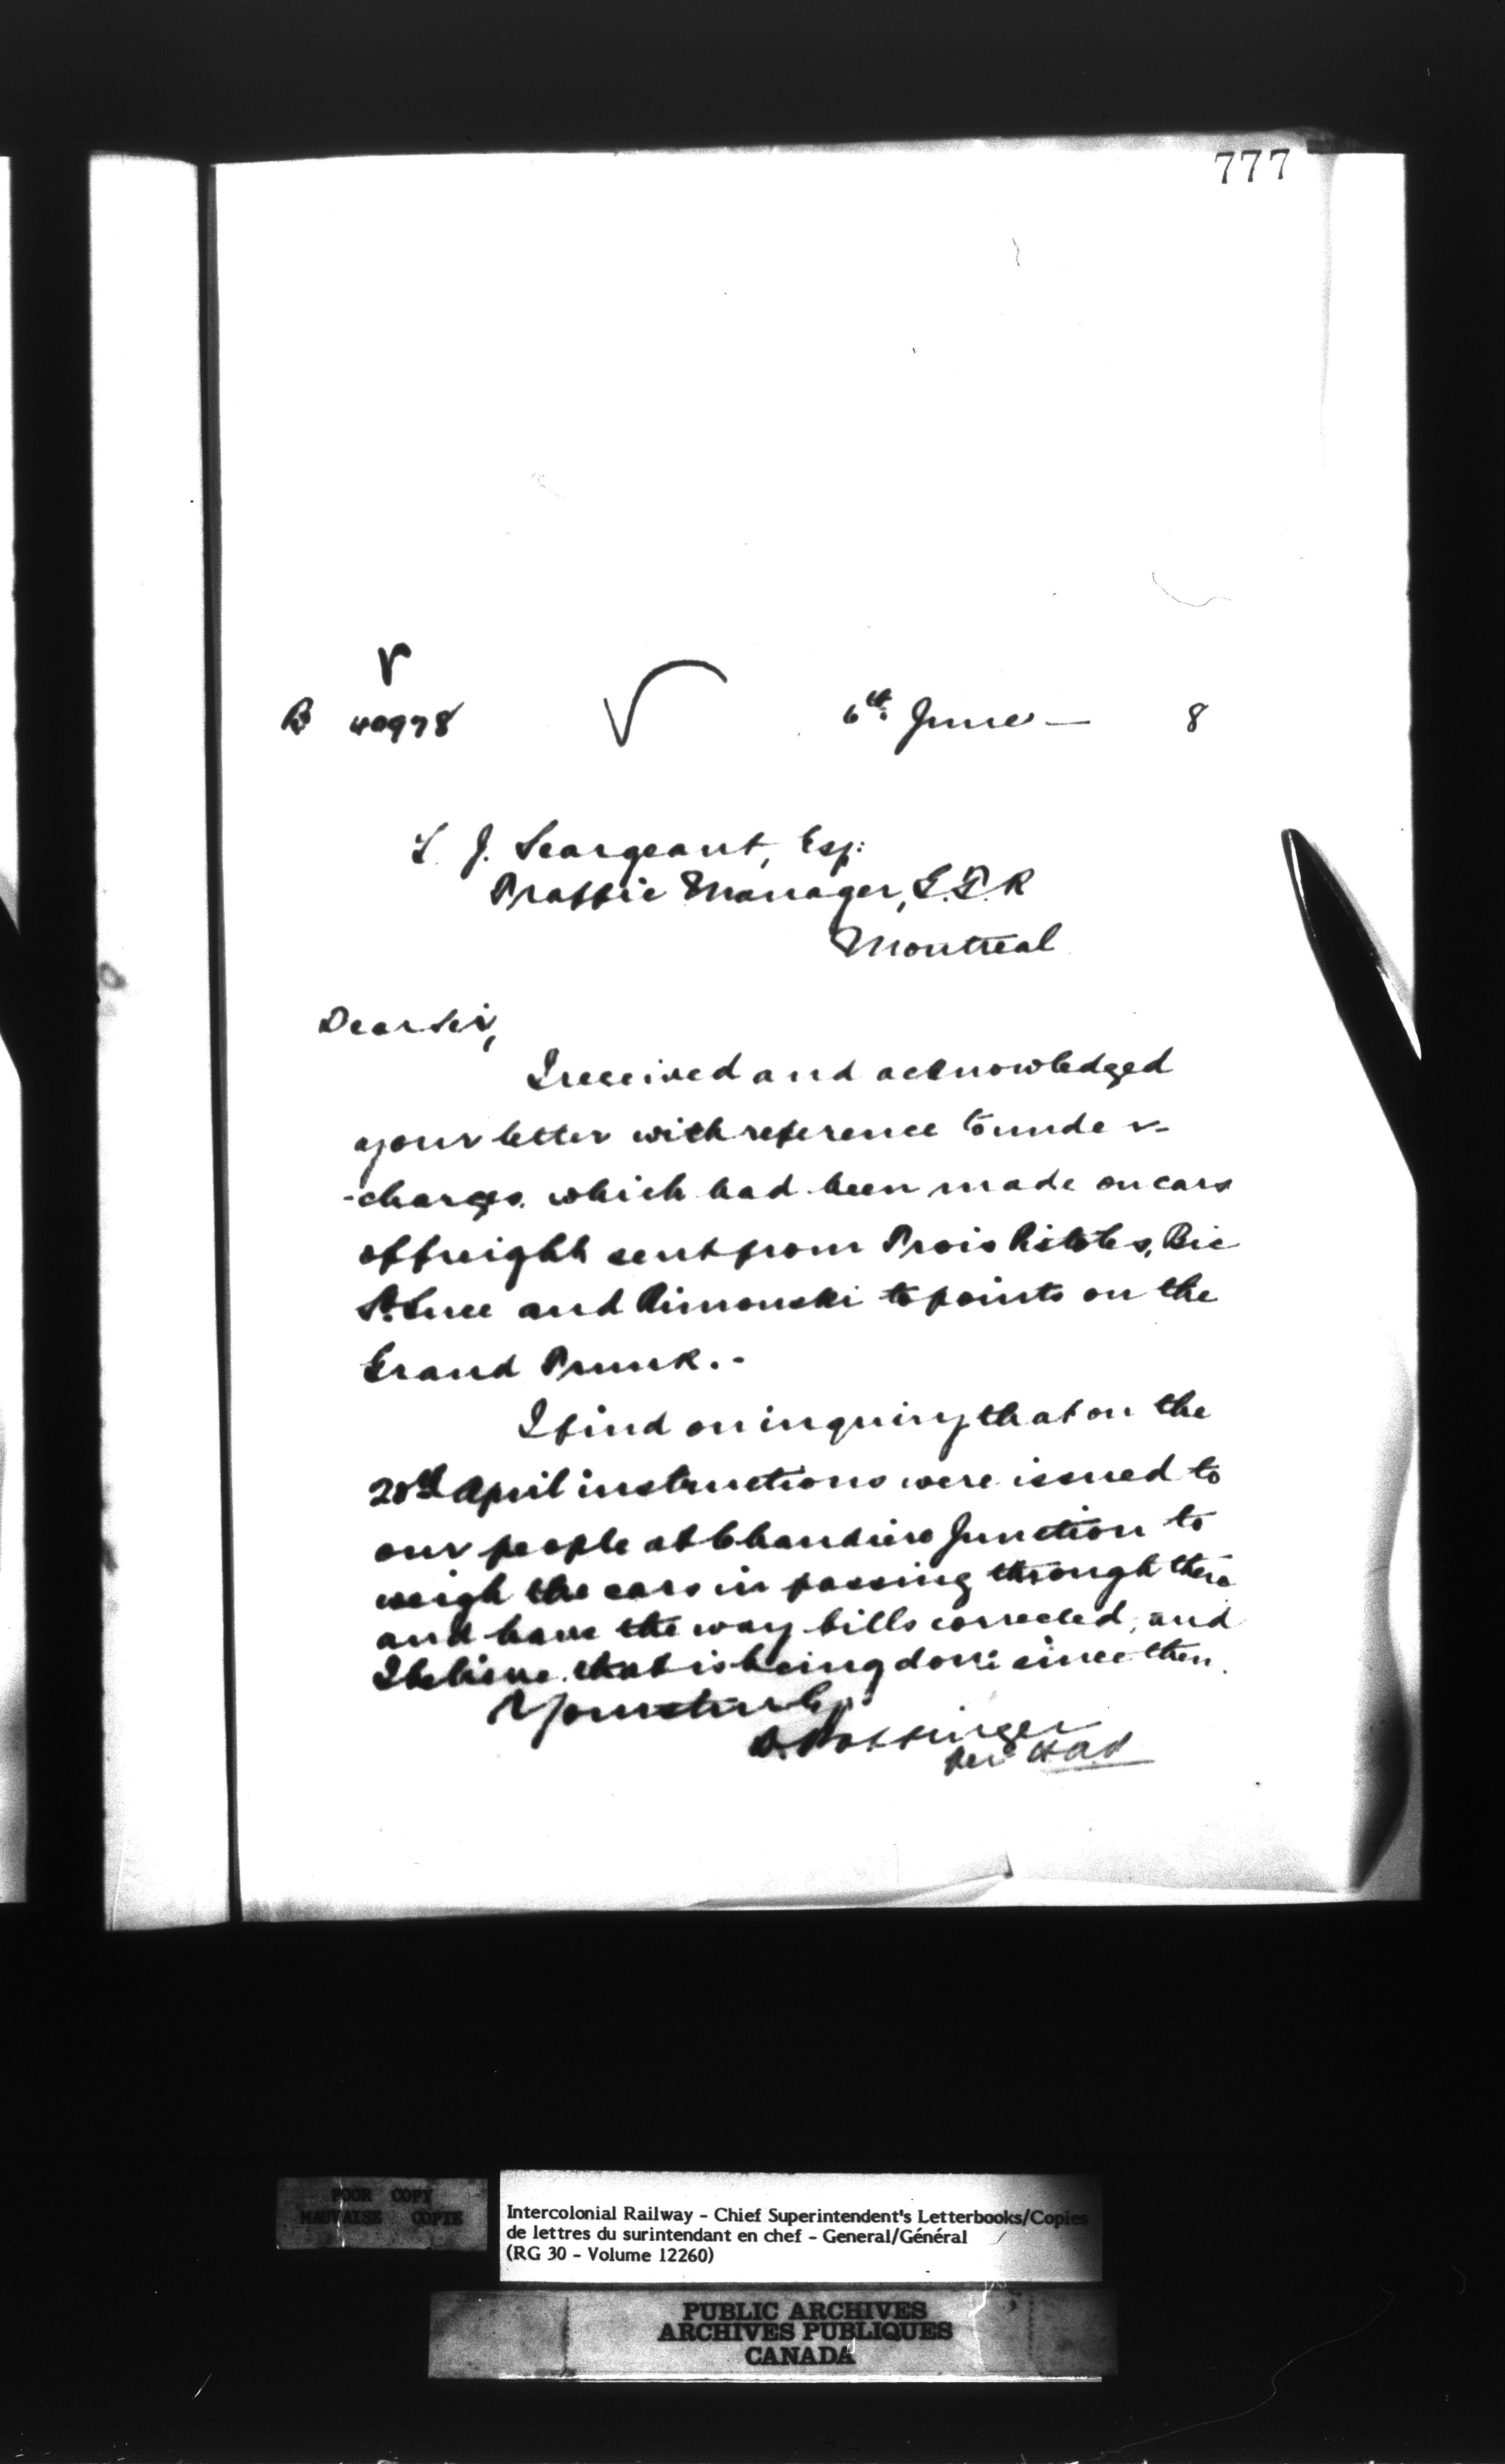 777
R 40978 6th June — 8
L. J. Seargeant, Esq:
Traffic Manager, G.T.R
Montreal
Dear Sir,
I received and acknowledged
your letter with reference to under-
-charges which had been made on cars
of freight sent from Trois Pistoles, Bic
St. Luce and Rimouski to points on the
Grand Trunk.-
I find on inquiry that on the
20th April instructions were issued to
our people at Chaudiere Junction to
weigh the cars in passing through there
and have the way bills corrected, and
I believe that is being done since then.
Yours truly
D. Pottinger
per
POOR COPY
MAUVAISE COPIE
Intercolonial Railway - Chief Superintendent's Letterbooks/Copies
de lettres du surintendant en chef - General/Général
(RG 30 - Volume 12260)
PUBLIC ARCHIVES
ARCHIVES PUBLIQUES
CANADA